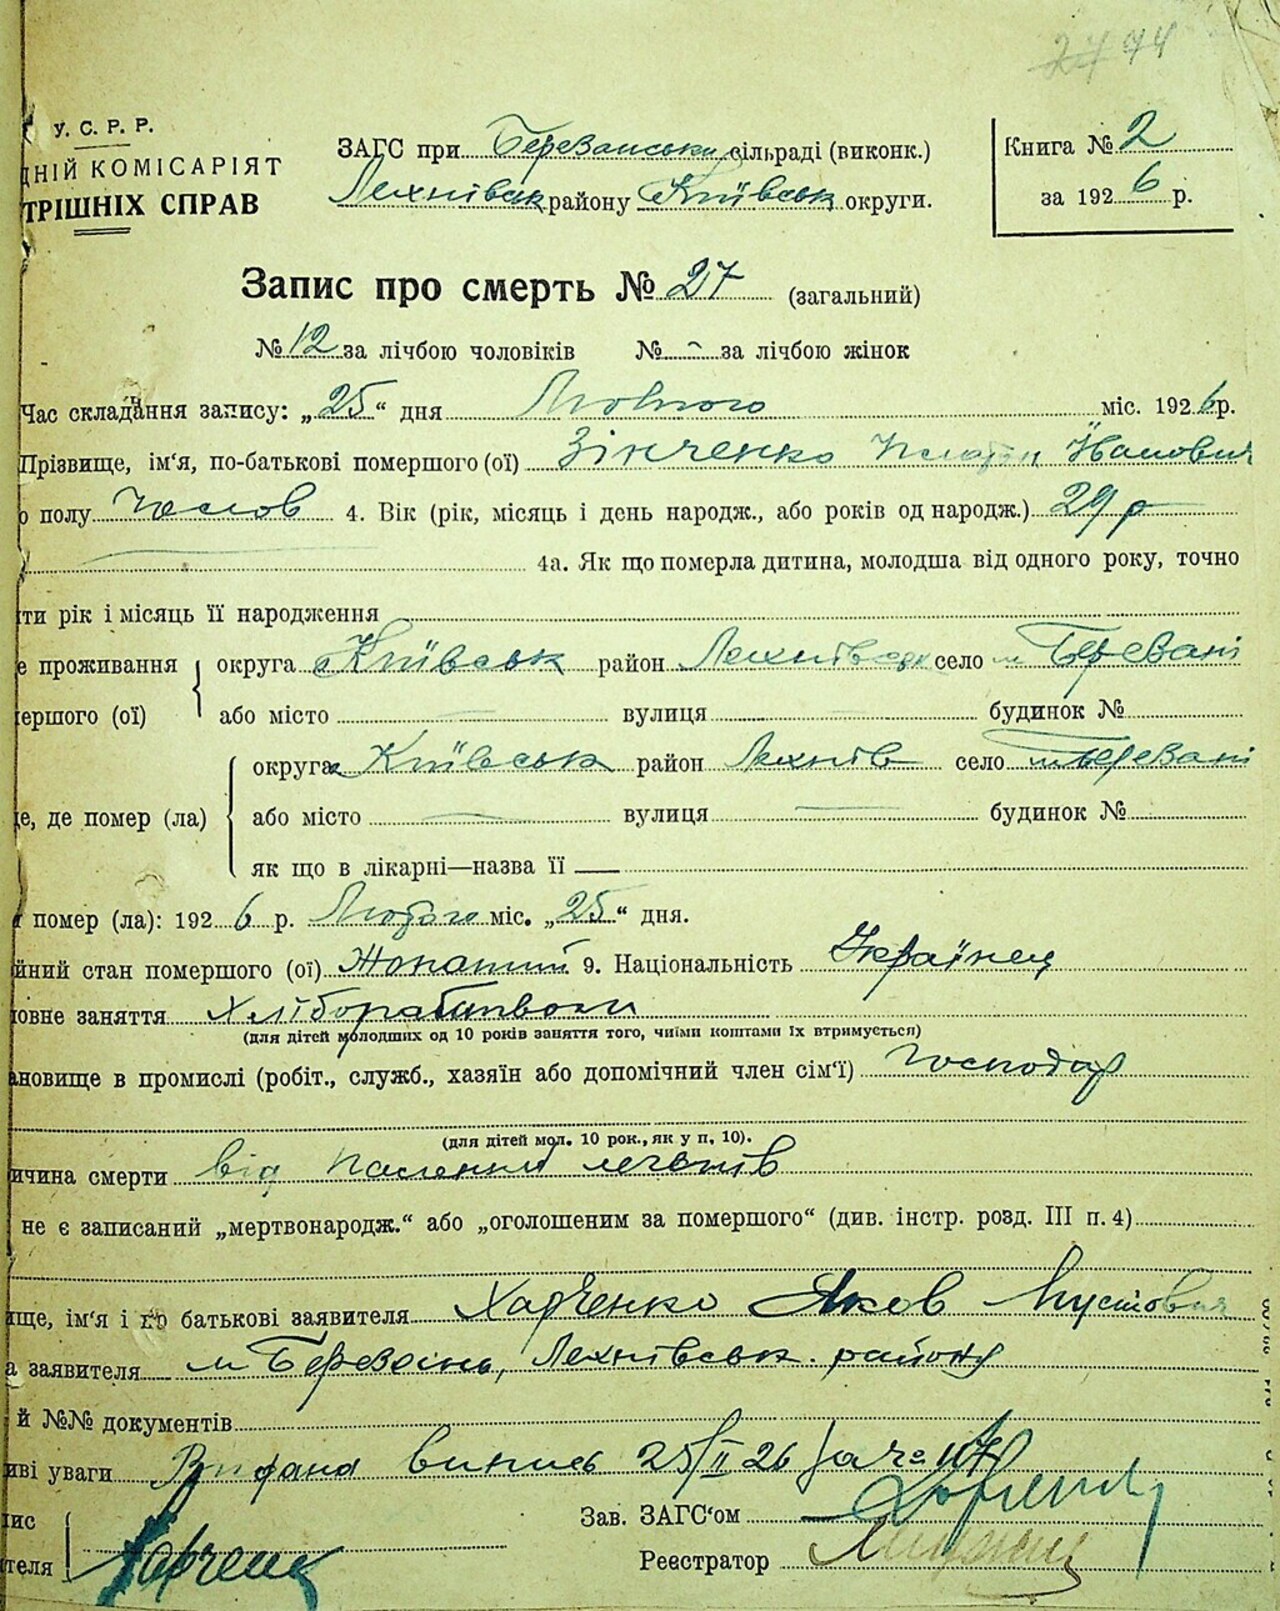 94
У. С. Р. Р.
ДНІЙ КОМІСАРІЯТ
ТРІШНІХ СПРАВ
ЗАГС при Березанськи сільраді (виконк.)
Яхнівськ району Київськ округи.
Книга № 2
за 1926 р.
Запис про смерть № 27 (загальний)
№ 12 за лічбою чоловіків № - за лічбою жінок
Час складання запису: „25“ дня Лютого міс. 1926 р.
Прізвище, ім'я, по-батькові помершого (ої) Зінченко
о полу Чолов 4. Вік (рік, місяць і день народж., або років од народж.) 29 р
4а. Як що померла дитина, молодша від одного року, точно
ти рік і місяць її народження
е проживання округа Київськ район село м Березані
ершого (ої) або місто вулиця будинок №
округа Київськ район село м Березані
це, де помер (ла) або місто вулиця будинок №
як що в лікарні—назва її
помер (ла): 1926 р. Лютого міс. „25“ дня.
йний стан помершого (ої) Жонатий 9. Національність Українец
ловне заняття
(для дітей молодших од 10 років заняття того, чиїми коштами їх втримується)
ановище в промислі (робіт., служб., хазяїн або допомічний член сім'ї) Господар
(для дітей мол. 10 рок., як у п, 10).
ичина смерти від легенів
не є записаний „мертвонародж.“ або „оголошеним за помершого“ (див. інстр. розд. III п. 4)
ище, ім'я і по батькові заявителя Харченко Яков
а заявителя м Березань, району
й №№ документів
иві уваги Видана випись 25/II 26 за ч= 107
пис Зав. ЗАГС'ом
ителя Харченк Реєстратор